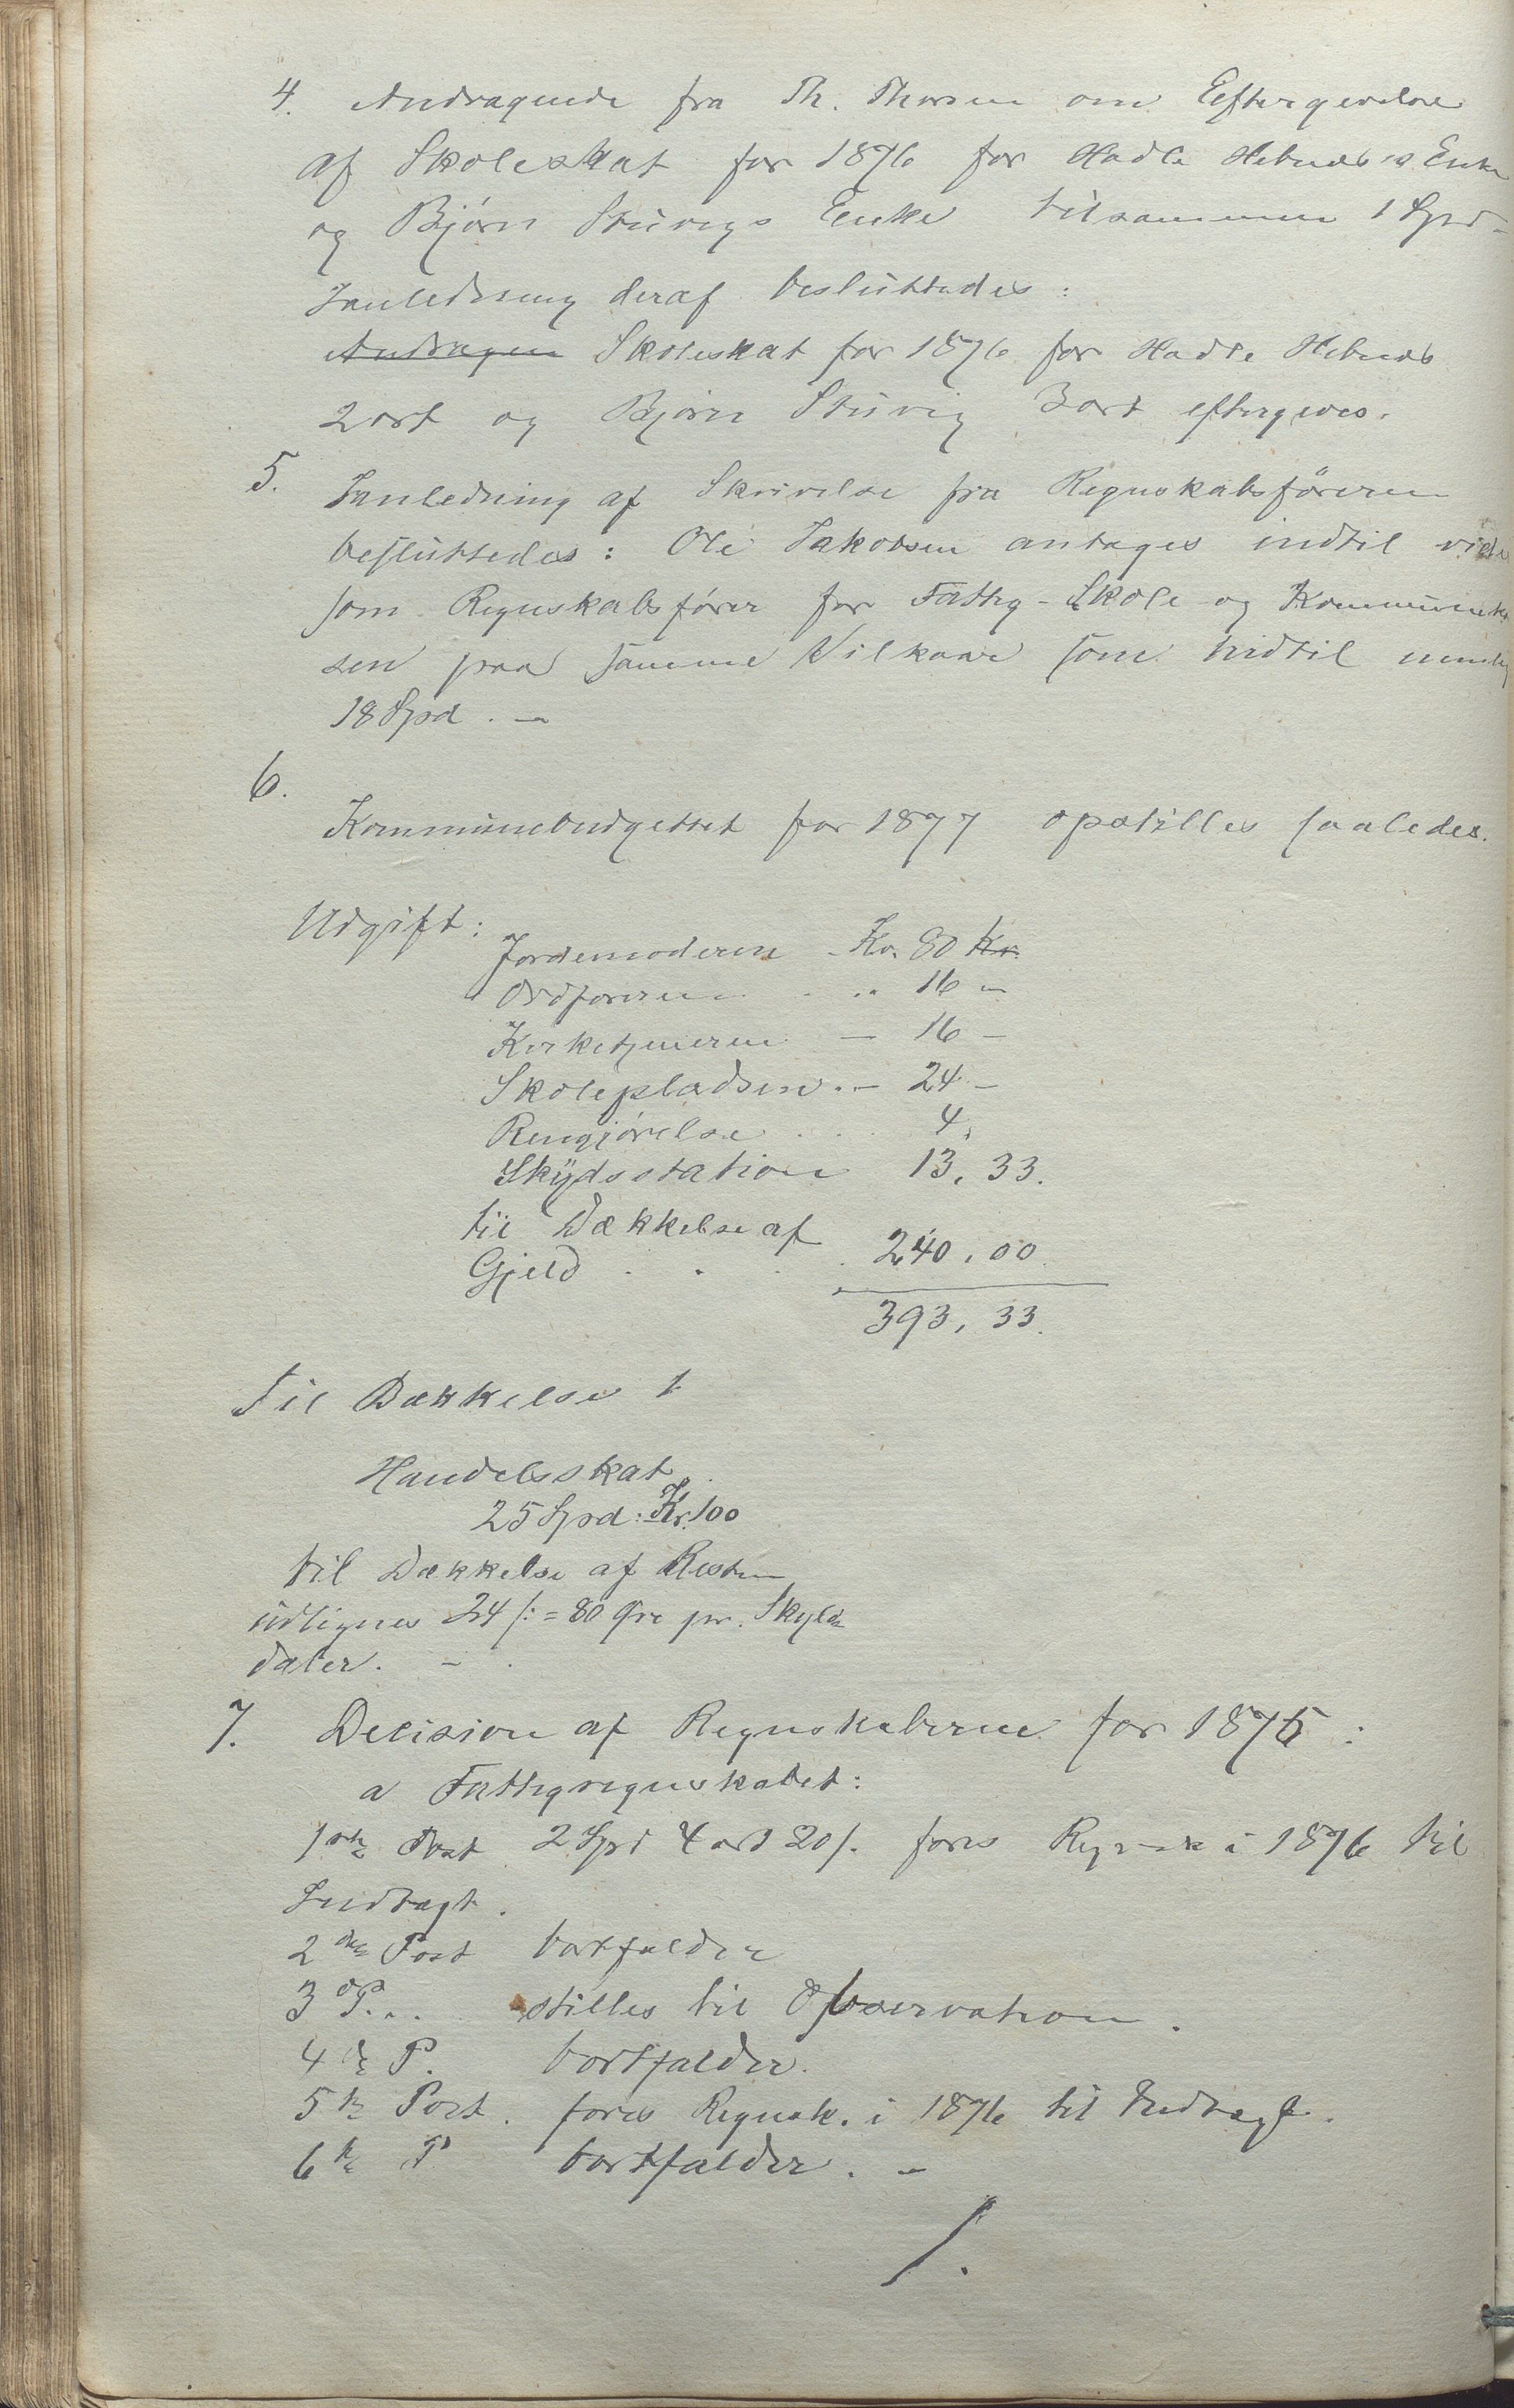 4. Andragende fra Th. Thorsen om Eftergivelse
af Skoleskat for 1876 for Hadle Hebnes's Enke
og Bjørn Stuvigs Enke tilsammen 1 Spd -
Ianledning deraf besluttedes:
Andragen Skoleskat for 1876 for Hadle Hebnes
2 ort og Bjørn Stuvig 3 ort eftergives.
5. Ianledning af Skrivelse fra Regnskabsføreren
besluttedes: Ole Jakobsen antages indtil vide
som Regnskabsfører for Fattig - Skole og Kommunek
sen paa samme Vilkaar som hidtil nemlig
18 Spd. -
6.
Kommunebudgettet for 1877 opstilles saaledes.
Udgift:
Jordemoderen - Kr. 80 Kr.
Ordføreren . .. 16 -
Kirketjeneren - 16 -
Skolepladsen . - 24 -
Rengjørelse . . . 4,
Skydsstation 13, 33.
til Dækkelse af
Gjeld . . . . 240, 00.
393, 33.
Til Dækkelse
Handelsskat
25 Spd: Kr. 100
til Dækkelse af Resten
udlignes 24 /: = 80 Øre pr. Skyld
daler. - .
7. Decision af Regnskaberne for 1875:
a Fattigregnskabet:
1ste Post 2 Spd 4 ort 20 /. føres i 1876 til
Indtægt.
2den Post bortfalder
3 P. .. stilles til Observation.
4de P. bortfalder.
5te Post. føres Regnsk. i 1876 til Indtægt.
6te P bortfalder. -
/.